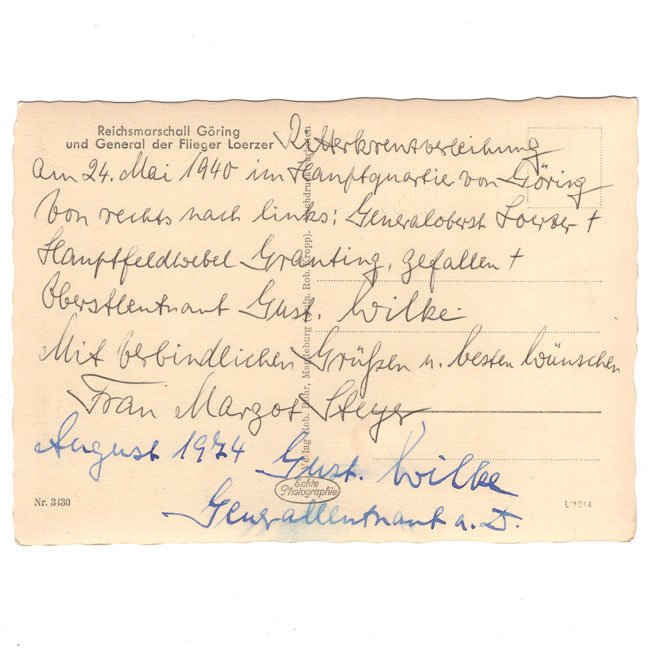 Reichsmarschall Göring
und General der Flieger Loerzer
Ritterkreuzverleihung
am 24. Mai 1940 im Hauptquartier von Göring
von rechts nach links: Generaloberst Loerzer +
Hauptfeldwebel Granting, gefallen +
Oberstleutnant Gust. Wilke.
Mit verbindlichen Grüßen u. besten Wünschen
Frau Margot Steyer
August 1974 Gust. Wilke
Generalleutnant a. D.
Echte
Photographie
Nr. 3430
L/1014
Verlag Rob. Röhr, Magdeburg